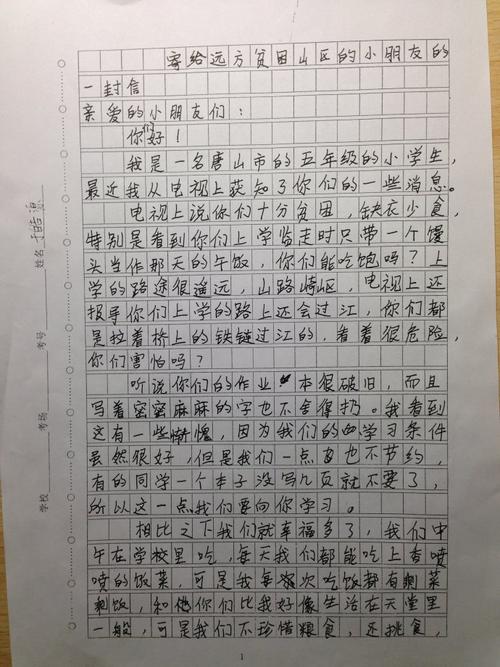 寄给远方贫困山区的小朋友的
一封信
亲爱的小朋友们：
你们好！
我是一名唐山市的五年级的小学生，
最近我从电视上获知了你们的一些消息。
电视上说你们十分贫困，缺衣少食，
特别是看到你们上学临走时只带一个馒
头当作那天的午饭，你们能吃饱吗？上
学的路途很遥远，山路崎岖，电视上还
报导你们上学的路上还会过江，你们都
是拉着桥上的铁链过江的，看着很危险，
你们害怕吗？
听说你们的作业本很破旧，而且
写着密密麻麻的字也不舍得扔。我看到
这有一些惭愧，因为我们的学习条件
虽然很好，但是我们一点也不节约，
有的同学一个本子没写几页就不要了，
所以这一点我们要向你学习。
相比之下我们就幸福多了，我们中
午在学校里吃，每天我们都能吃上香喷
喷的饭菜，可是我每次吃饭都有剩菜
剩饭，和你们比我好像生活在天堂里
一般，可是我们不珍惜粮食，还挑食，
学校 考场 考号 姓名
1